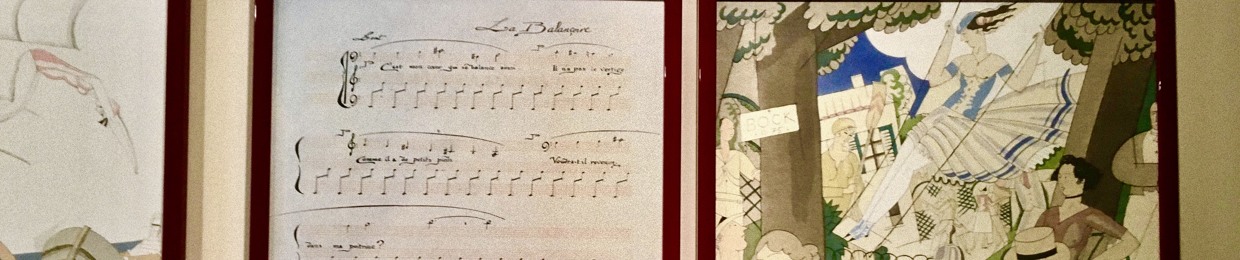 La Balançoire
Lent
C'est mon cœur qui se balance ainsi Il n'a pas le vertige
Comme il a de petits pieds Voudra-t-il revenir
dans ma poitrine?
BOCK